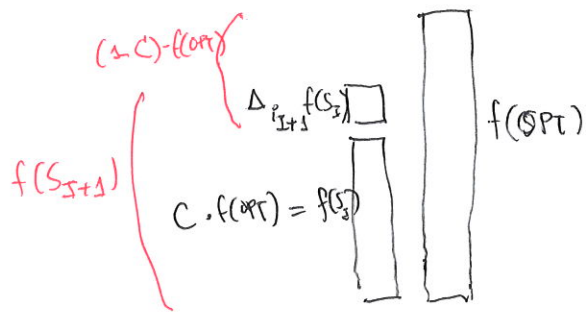 (1-C)·f(OPT)
Δ_{i_{I+1}} f(S_I)
f(OPT)
f(S_{I+1})
C·f(OPT) = f(S_I)